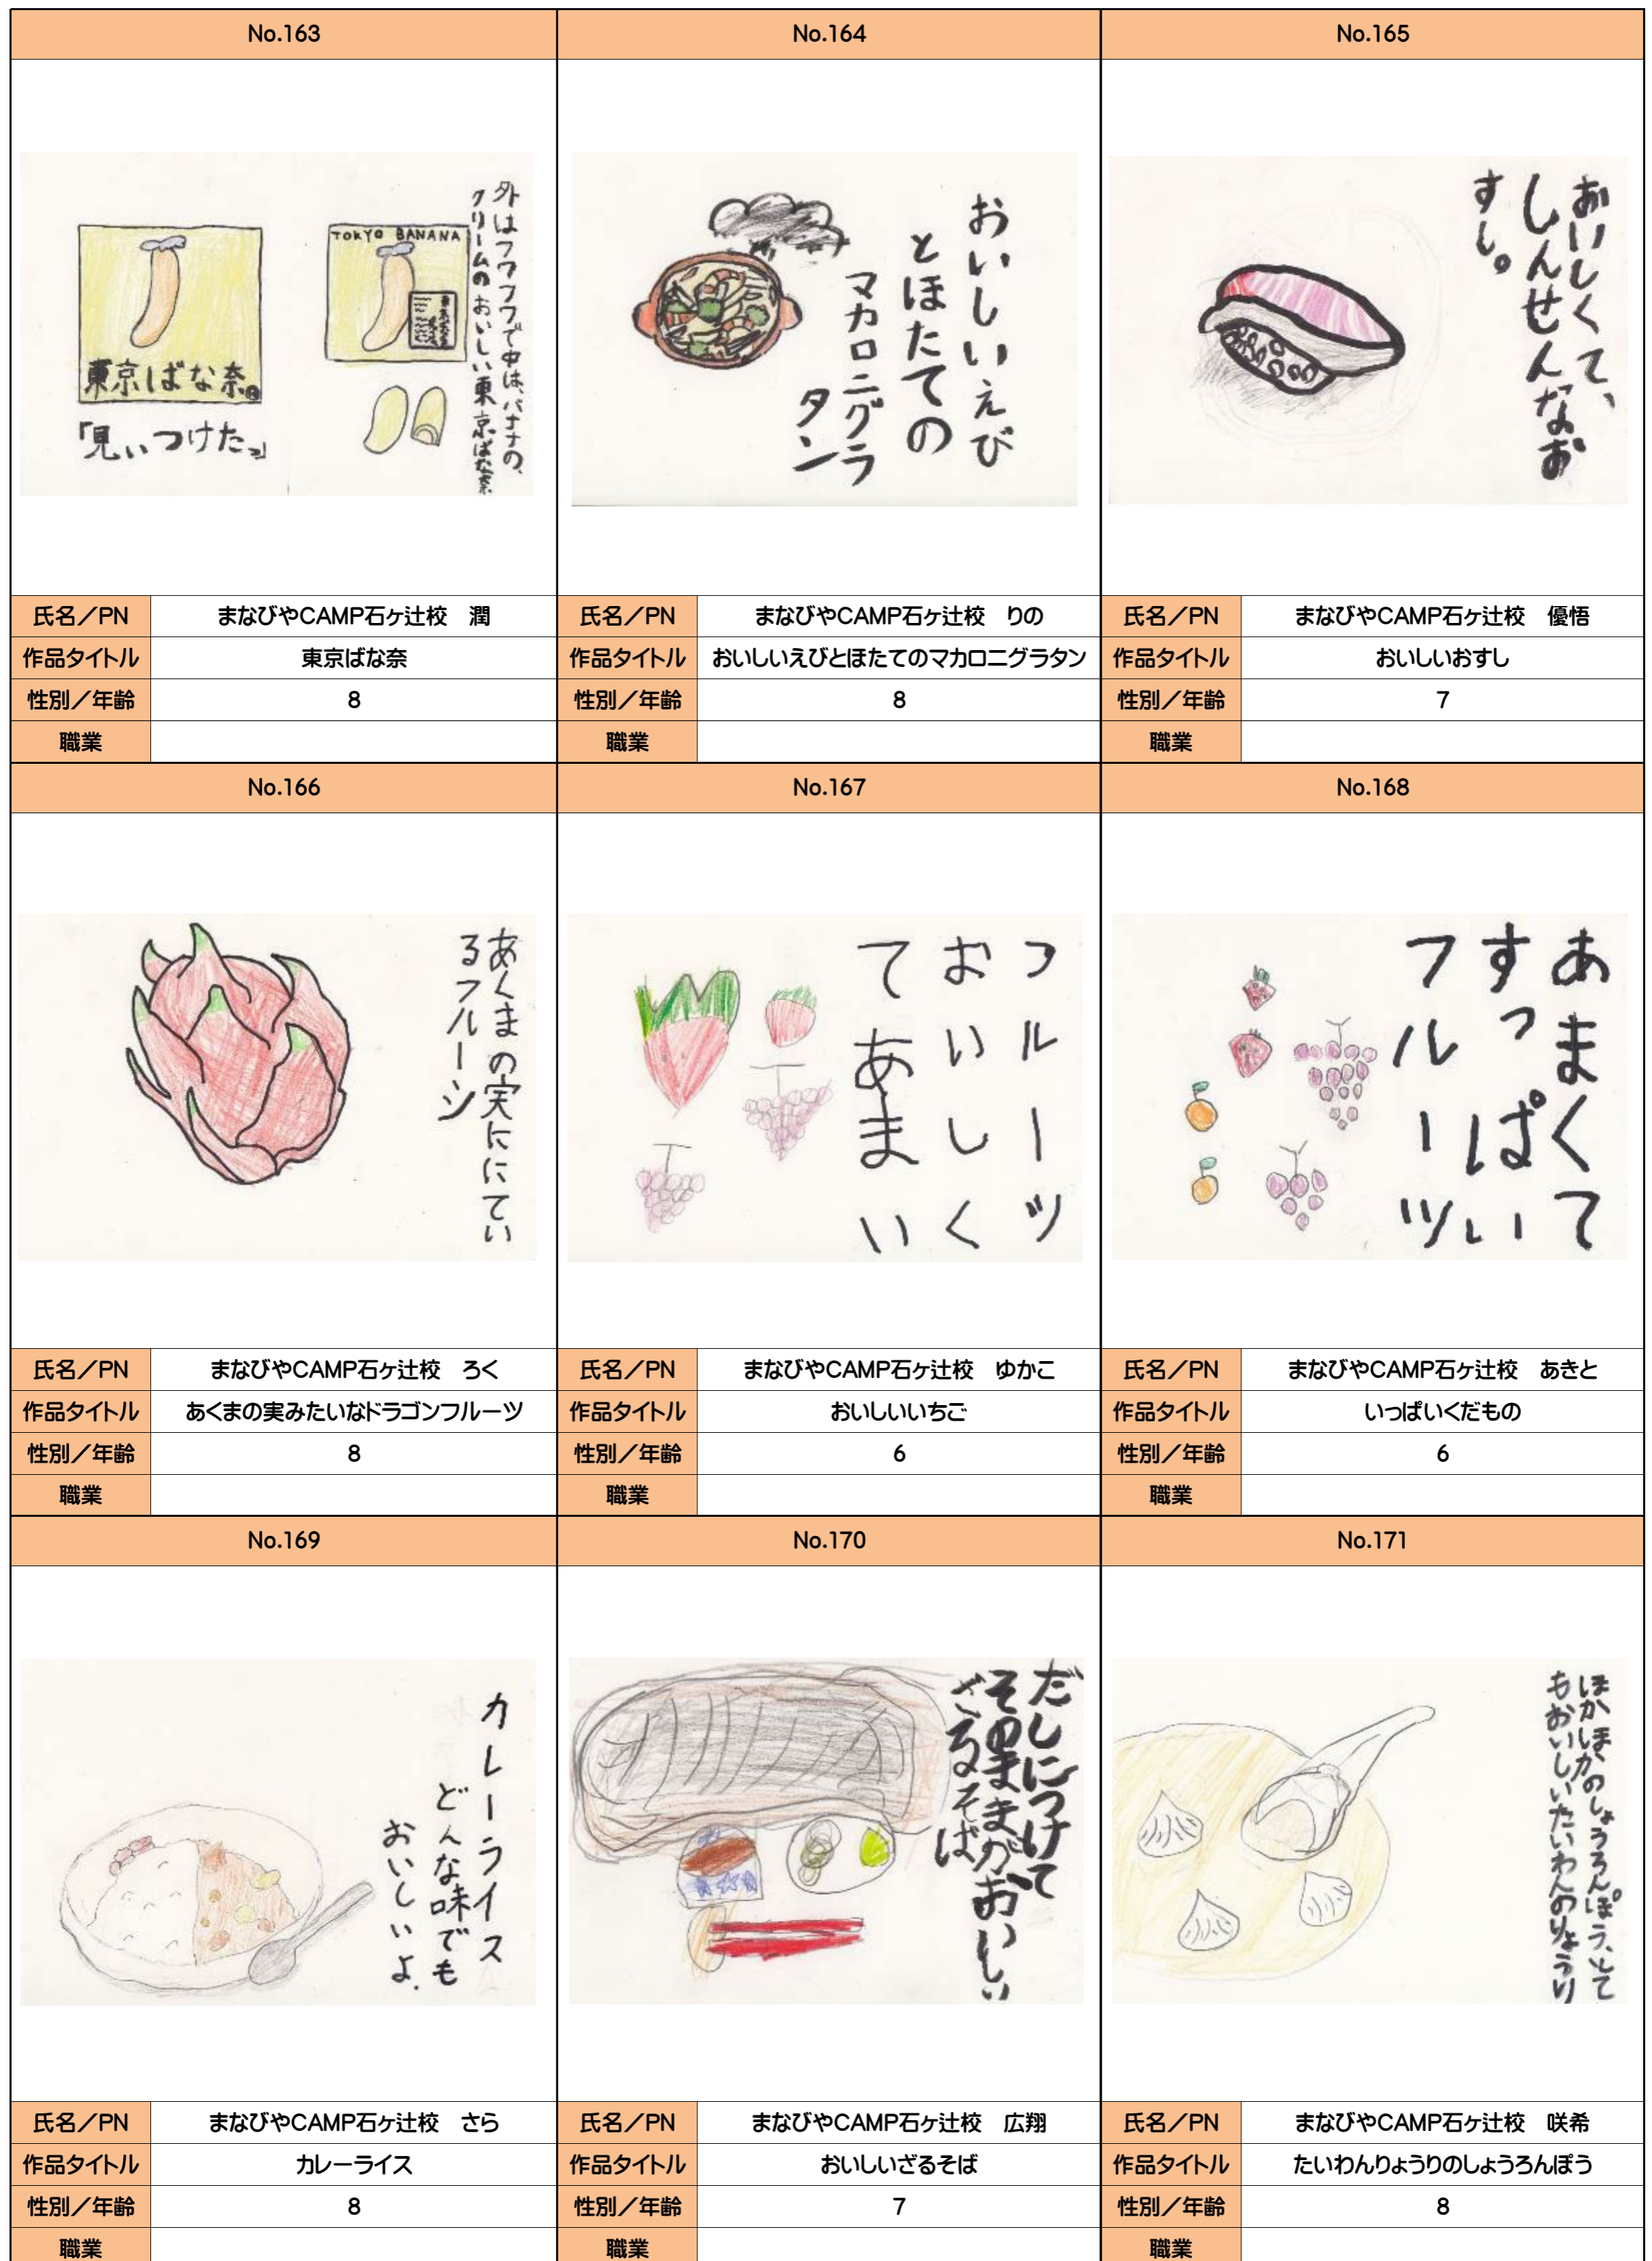 No.163
外はフワフワで中は、バナナの、
クリームの おいしい東京ばな奈
TOKYO BANANA
東京ばな奈
「見ぃつけたっ」
氏名／PN
まなびやCAMP石ヶ辻校　潤
作品タイトル
東京ばな奈
性別／年齢
8
職業
No.164
おいしいえび
とほたての
マカロニグラ
タン
氏名／PN
まなびやCAMP石ヶ辻校　りの
作品タイトル
おいしいえびとほたてのマカロニグラタン
性別／年齢
8
職業
No.165
おいしくて、
しんせんなお
すし。
氏名／PN
まなびやCAMP石ヶ辻校　優悟
作品タイトル
おいしいおすし
性別／年齢
7
職業
No.166
あくまの実ににてい
るフルーツ
氏名／PN
まなびやCAMP石ヶ辻校　ろく
作品タイトル
あくまの実みたいなドラゴンフルーツ
性別／年齢
8
職業
No.167
フルーツ
おいしく
てあまい
氏名／PN
まなびやCAMP石ヶ辻校　ゆかこ
作品タイトル
おいしいいちご
性別／年齢
6
職業
No.168
あまくて
すっぱい
フルーツ
氏名／PN
まなびやCAMP石ヶ辻校　あきと
作品タイトル
いっぱいくだもの
性別／年齢
6
職業
No.169
カレーライス
どんな味でも
おいしいよ.
氏名／PN
まなびやCAMP石ヶ辻校　さら
作品タイトル
カレーライス
性別／年齢
8
職業
No.170
だしにつけて
そのままがおいしい
ざるそば
氏名／PN
まなびやCAMP石ヶ辻校　広翔
作品タイトル
おいしいざるそば
性別／年齢
7
職業
No.171
ほかほかのしょうろんぽう、とて
もおいしいたいわんのりょうり
氏名／PN
まなびやCAMP石ヶ辻校　咲希
作品タイトル
たいわんりょうりのしょうろんぽう
性別／年齢
8
職業